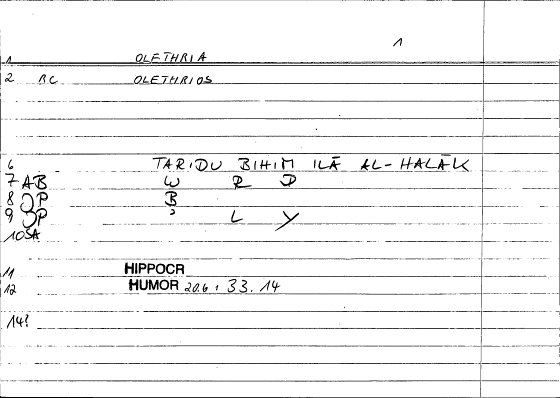 1
1 OLETHRIA
2 BC OLETHRIOS
6 TARIDU BIHIM ILĀ AL-HALĀK
7 AB W R D
8 P B
9 P ʾ L Y
10 SA
11 HIPPOCR
12 HUMOR 20.6 ; 33.14
14?